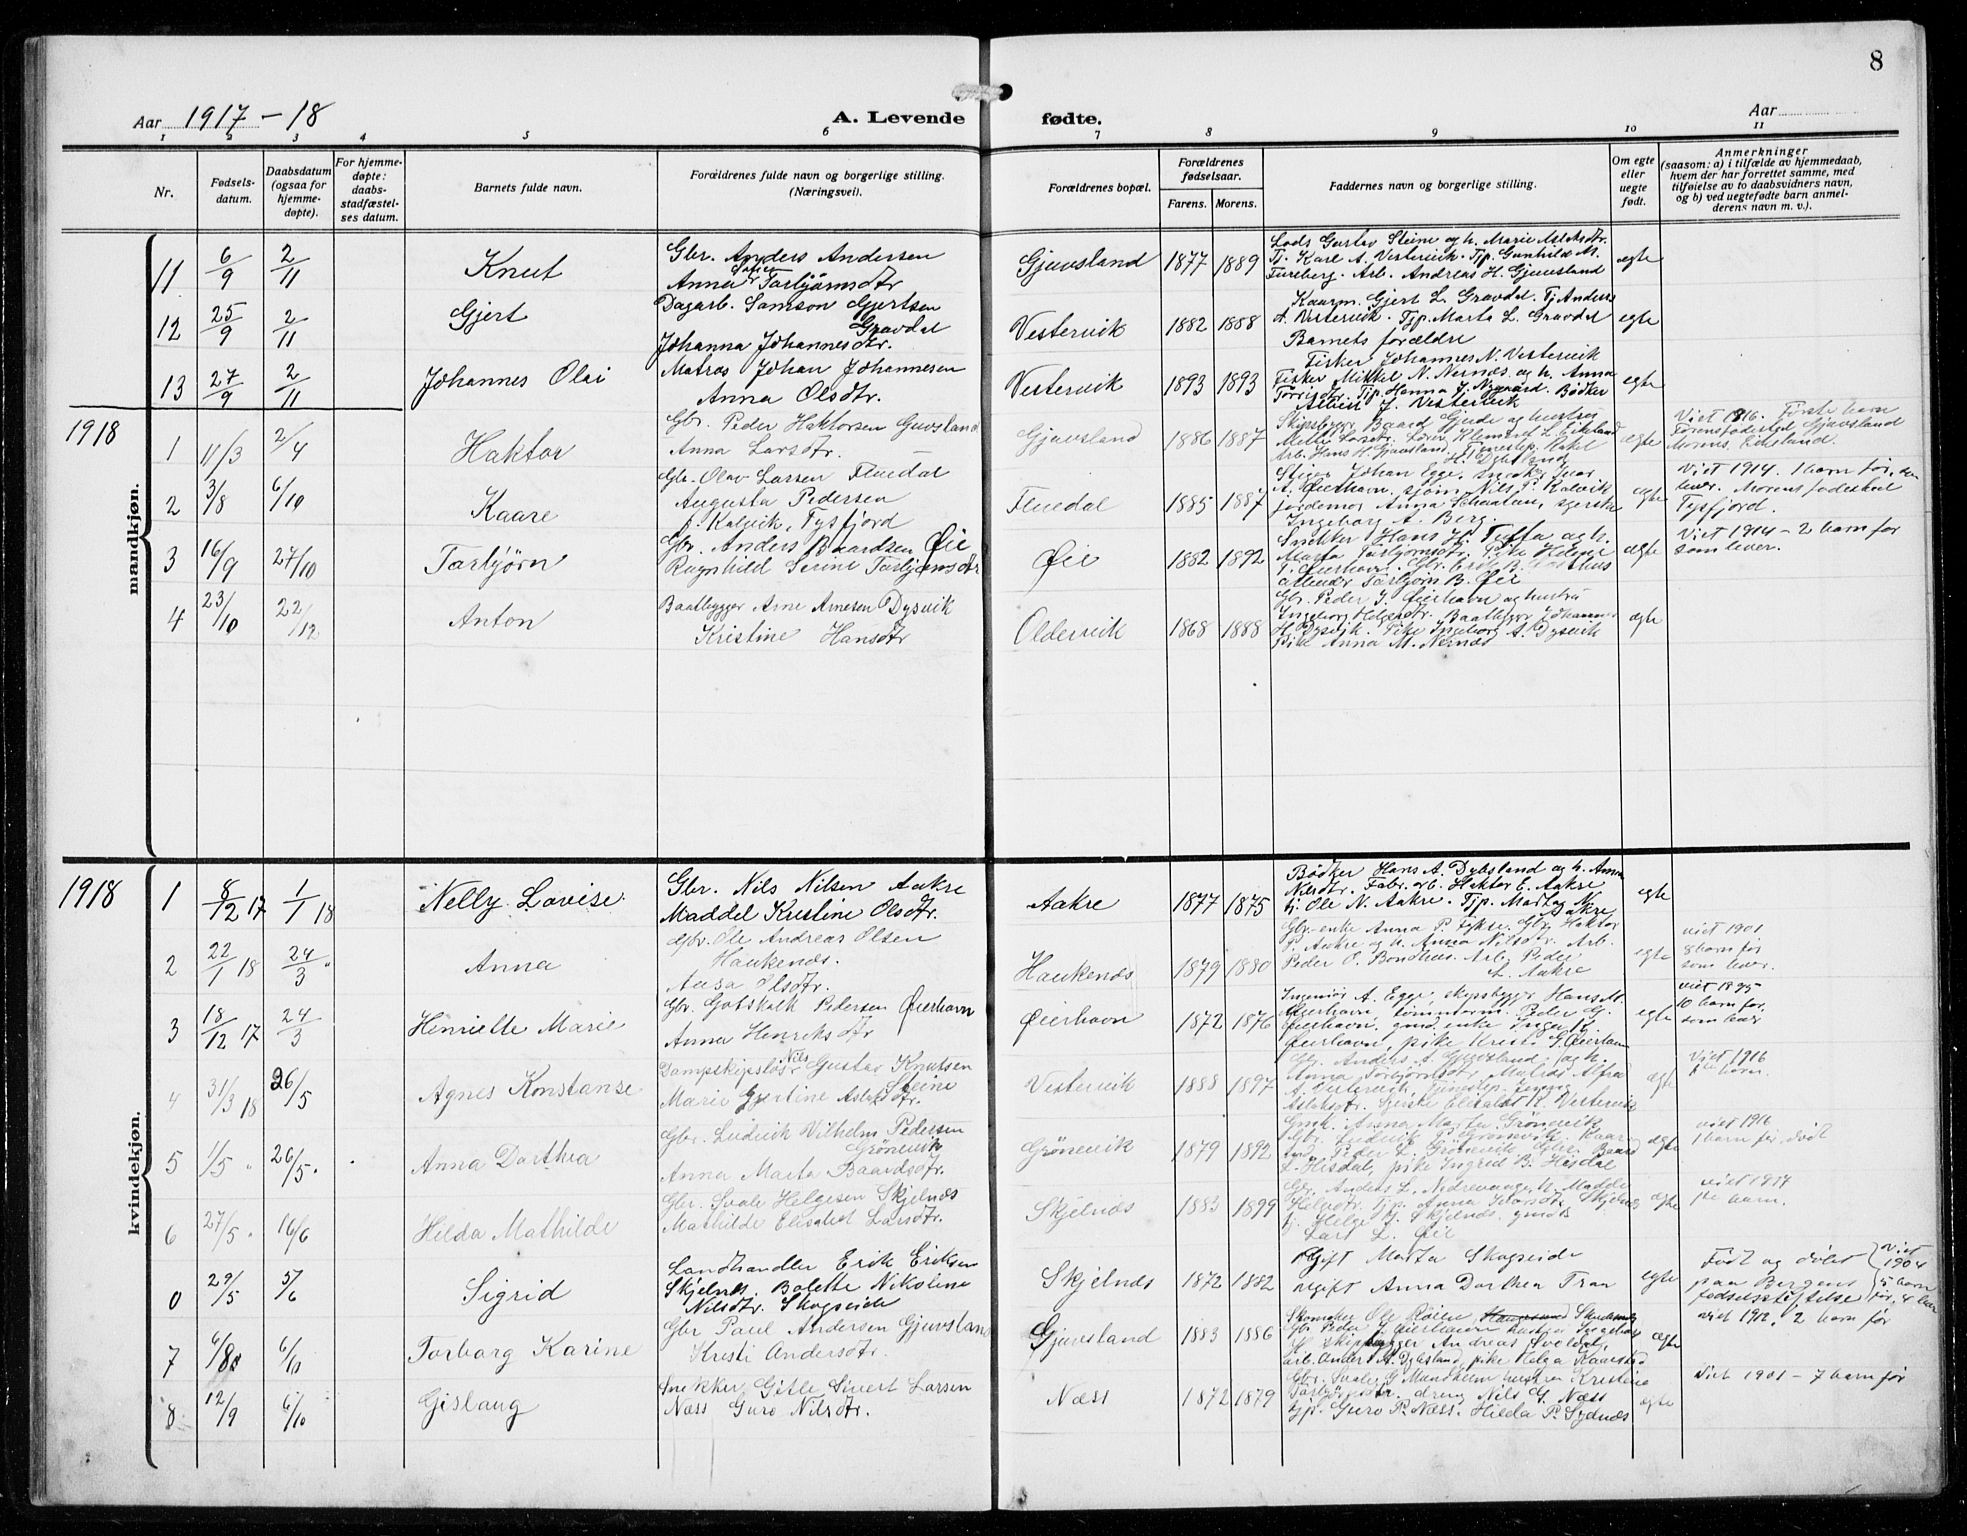 8
Aar 1917-18
A. Levende fødte.
Aar
1 2 3 4 5 6 7 8 9 10 11
Nr.
Fødsels-
datum.
Daabsdatum
(ogsaa for
hjemme-
døpte).
For hjemme-
døpte:
daabs-
stadfæstel-
ses datum.
Barnets fulde navn.
Forældrenes fulde navn og borgerlige stilling.
(Næringsvei).
Forældrenes bopæl.
Forældrenes
fødselsaar.
Farens. Morens.
Faddernes navn og borgerlige stilling.
Om egte
eller
uegte
født.
Anmerkninger
(saasom: a) i tilfælde av hjemmedaab,
hvem der har forrettet samme, med
tilføielse av to daabsvidners navn,
og b) ved uegtefødte barn anmel-
derens navn m. v.).
mandkjøn.
11 6/9 2/11 Knut
Gbr. Anders Andersen
Anna Sofie Torbjørnsdtr
Gjuvsland 1877 1889
Lods Gustav Steine og h. Marie Aslaksdtr.
Tj. Karl A. Vestervik. Tjp. Gunhild As.
Fureberg. Arb. Andreas H. Gjuvsland
egte
12 25/9 2/11 Gjert
Dagarb. Samson Gjertsen
Gravdal
Johanna Johannesdtr.
Vestervik 1882 1888
Kaarm. Gjert L. Gravdal. Tj. Anders
A. Vestervik. Tjp. Marta L. Gravdal
Barnets forældre
egte
13 27/9 2/11 Johannes Olai
Matros Johan Johannesen
Anna Olsdtr.
Vestervik 1893 1893
Fisker Johannes N. Vestervik
Fisker Mikkel N. Nernæs og h. Anna
Torrisdtr. Tjp. Hanna J. Nygaard. Bødker
J. Vestervik
egte
1918
1 11/3 2/4 Haktor
Gbr. Peder Haktorsen Guvsland
Anna Larsdtr.
Gjuvsland 1886 1887
Skipsbygger Baard Gjerde og hustru
Lærer Klemet L. Eikeland
Arb. Hans H. Gjuvsland
egte
Viet 1916. Første barn
Farens fødested Gjuvsland
Morens Eikeland.
2 3/8 6/10 Kaare
Gbr. Olav Larsen Fluedal
Augusta Pedersen
f. Kalvik, Tysfjord
Fluedal 1885 1887
Stiger Johan Egge
A. Øierhavn, sjøm. Nils P. Kalvik
jordemor Anna
Ingeborg A. Berg.
egte
Viet 1914. 1 barn før, som
lever. Morens fødested
Tysfjord.
3 16/9 27/10 Torbjørn
Gbr. Anders Baardsen Øie
Ragnhild Serine Torbjørnsdtr
Øie 1882 1892
Snekker Hans H. Tuffa og h.
Marta Torbjørnsdtr. Pike Helene
Torbjørn B. Øie
egte
Viet 1914 - 2 barn før
som lever.
4 23/10 22/12 Anton
Baatbygger Arne Arnesen Dysvik
Kristine Hansdtr
Oldervik 1868 1888
Gbr. Peder J. Øierhavn og hustru
Ingeborg Helgesdtr. Baatbygger Johannes
H. Dysvik. Pike Ingeborg A. Dysvik
Pike Anna M. Nernæs
egte
1918
kvindekjøn.
1 8/12 17 1/1 18 Nelly Lovise
Gbr. Nils Nilsen Aakre
Maddel Kristine Olsdtr.
Aakre 1877 1875
Bødker Hans A. Dybsland og h. Anna
Nilsdtr. Fabr. arb. Haktor E. Aakre
tj. Ole N. Aakre. Tjp. Marta N.
Aakre
egte
2 22/1 18 24/3 Anna
Gbr. Ole Andreas Olsen
Haukenæs.
Olsdtr.
Haukenæs 1879 1880
Gbr.-enke Anna P. Fykse. Gbr. Haktor
P. Aakre og h. Anna Nilsdtr. Arb.
Peder O. Bondhus. Arb. Peder
L. Aakre
egte
viet 1901
8 barn før
som lever.
3 18/12 17 24/3 Henriette Marie
Gbr. Gotskalk Pedersen Øierhavn
Anna Henriksdtr
Øierhavn 1872 1876
Ingeniør A. Egge, skipsbygger Hans M.
Øierhavn, tømmerm. Peder G.
Øierhavn, gmd. enke Inga K.
Øierhavn, pike Kristi G. Øierhavn
egte
viet 1895
10 barn før,
som lever
4 31/3 18 26/5 Agnes Konstanse
Dampskipslos Nils Gustav Knutsen
Steine
Marie Gjertine Aslaksdtr.
Vestervik 1888 1897
Gbr. Anders A. Gjuvsland og h.
Anna Torbjørnsdtr Matros Alfred
A. Vestervik, Tjenestep.
Aslaksdtr. Elisabet K. Vestervik
egte
Viet 1916
1ste barn.
5 1/5 26/5 Anna Dorthea
Gbr. Ludvik Vilhelm Pedersen
Grønevik
Anna Marta Baardsdtr.
Grønevik 1879 1892
Gmk. Anna Marta Grønevik
Gbr. Ludvik P. Grønevik
Peder L. Grønevik
L. Hisdal, pike Ingrid B. Hisdal
egte
viet 1916
1 barn før, dødt
6 27/5 16/6 Hilda Mathilde
Gbr. Svale Helgesen Skjelnæs
Mathilde Elisabet Larsdtr.
Skjelnæs 1883 1899
Gbr. Anders L. Nedrevaage, h. Madde
Helgesdtr. Tjp. Anna Skjelnæs
tj. Helge J. Skjelnæs
Lars L. Øie
egte
viet 1917
1ste barn.
0 29/5 5/6 Sigrid
Landhandler Erik Eriksen
Skjelnæs. Bolette Nikoline
Nilsdtr. Skogseide
Skjelnæs 1872 1882
Ugift Marta Skogseide
ugift Anna Dorthea Traa
egte
Født og døbt
paa Bergens
fødselsstiftelse
Viet
1904
5 barn
før. 4 lever
7 6/8 6/10 Torborg Karine
Gbr Paul Andersen Gjuvsland
Kristi Andersdtr.
Gjuvsland 1883 1886
Skomaker Ole Røien
Gbr. Peder J. Øierhavn hustru Ingeborg
H. Skipsbygger Andreas
arb. Anders A. Dybsland, pike Helga Kaarstad
egte
viet 1912. 2 barn før
8 12/9 6/10 Gislaug
Snekker Gitle Sivert Larsen
Næss Guro Nilsdtr.
Næss 1872 1879
Gbr. Svale G. Mundheim hustru Kristine
Torbjørnsdtr. dreng Nils G. Næss
tjp. Guro P. Næss. Hilda P. Sydnæs
egte
Viet 1901 - 7 barn før